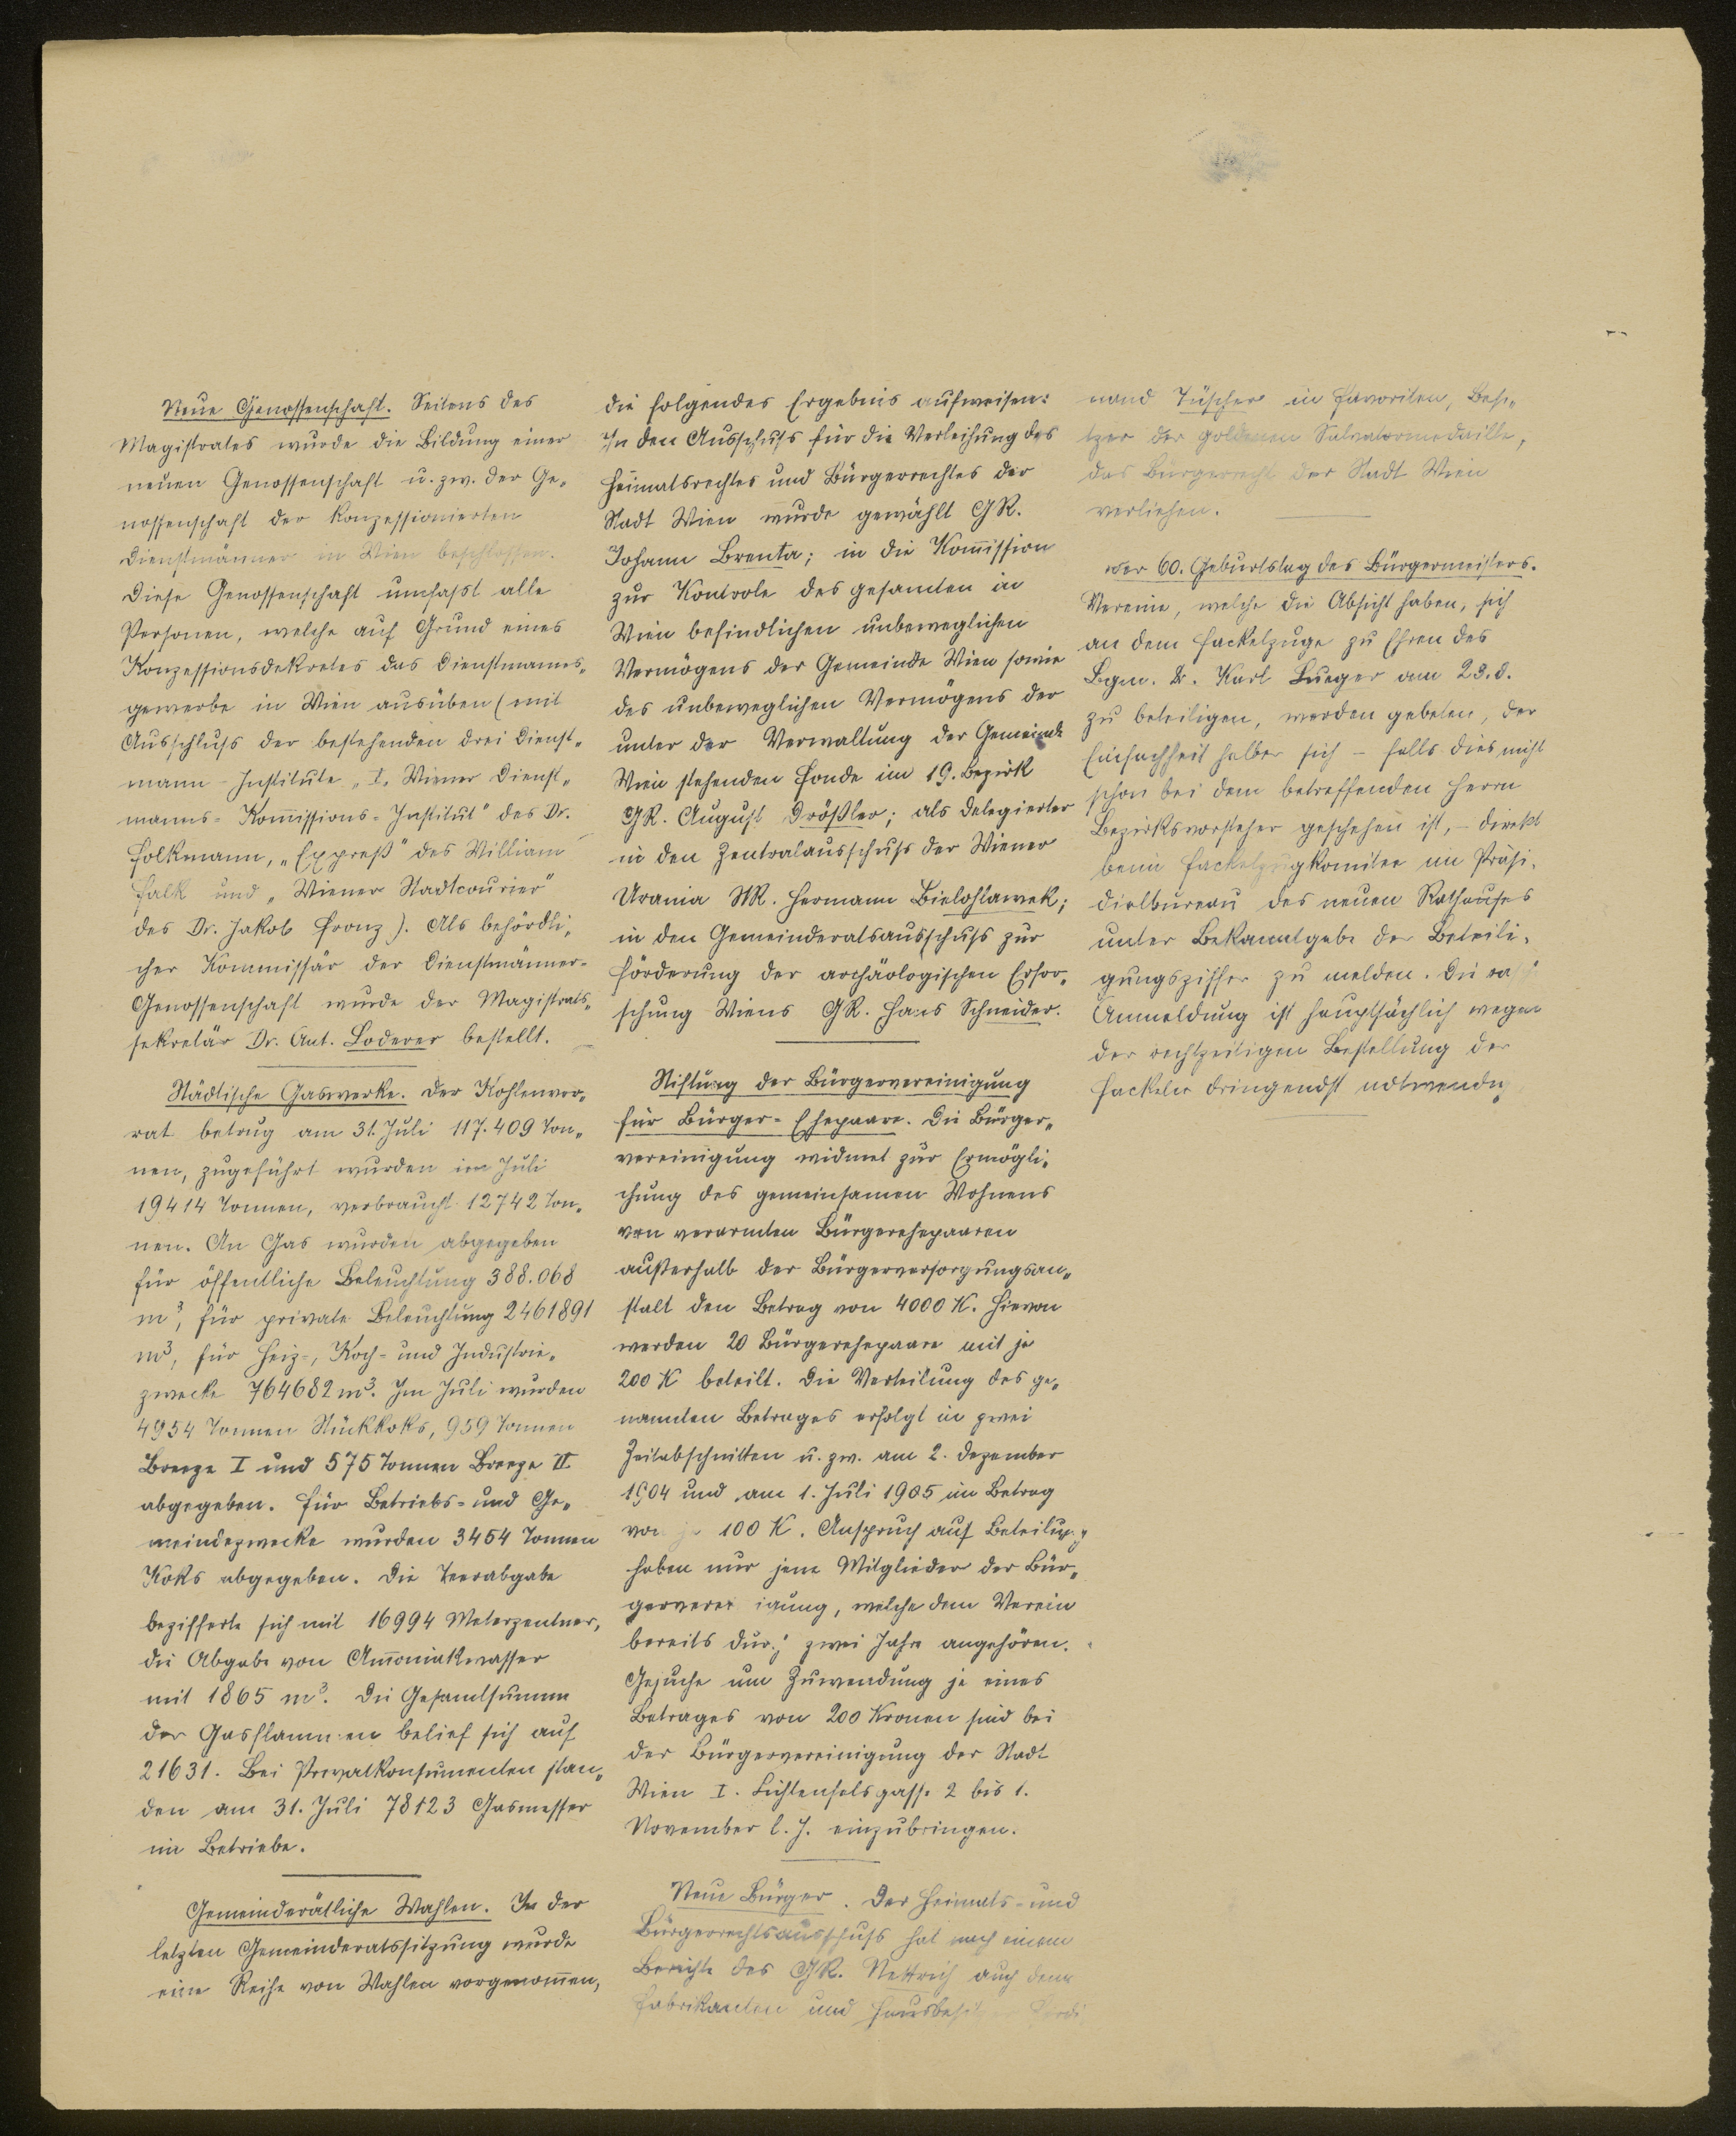 Neue Genossenschaft. Seitens des
Magistrates wurde die Bildung einer
neuen Genossenschaft u. zw. der Ge„
nossenschaft der konzessionierten
Dienstmänner in Wien beschlossen.
Diese Genossenschaft umfasst alle
Personen, welche auf Grund eines
Konzessionsdekretes das Dienstmanns„
gewerbe in Wien ausüben (mit
Ausschluss der bestehenden drei Dienst„
mann-Institute „I. Wiener Dienst„
manns-Kom̅issions-Institut" des Dr.
Folkmann, „Expreß" des William
Falk und „Wiener Stadtcourier"
des Dr. Jakob Franz). Als behördli„
cher Kommissär der Dienstmänner-
Genossenschaft wurde der Magistrats„
sekretär Dr. Ant. Loderer bestellt.
Städtische Gaswerke. Der Kohlenvor„
rat betrug am 31. Juli 117.409 Ton„
nen, zugeführt wurden im Juli
19414 Tonnen, verbraucht 12742 Ton„
nen. An Gas wurden abgegeben
für öffentliche Beleuchtung 388.068
m³, für private Beleuchtung 2461891
m³, für Heiz-, Koch- und Industrie„
zwecke 764682 m³. Im Juli wurden
4954 Tonnen Stückkoks, 959 Tonnen
Breeze I und 575 Tonnen Breeze II
abgegeben. Für Betriebs- und Ge„
meindezwecke wurden 3454 Tonnen
Koks abgegeben. Die Teerabgabe
bezifferte sich mit 16994 Meterzentner,
die Abgabe von Am̅oniakwasser
mit 1865 m³. Die Gesamtsumme
der Gasflammen belief sich auf
21631. Bei Privatkonsumenten stan„
den am 31. Juli 78123 Gasmesser
im Betriebe.
Gemeinderätliche Wahlen. In der
letzten Gemeinderatssitzung wurde
eine Reihe von Wahlen vorgenom̅en,
die folgendes Ergebnis aufweisen:
In den Ausschuss für die Verleihung des
Heimatsrechtes und Bürgerrechtes der
Stadt Wien wurde gewählt GR.
Johann Brenta; in die Kom̅ission
zur Kontrole des gesamten in
Wien befindlichen unbeweglichen
Vermögens der Gemeinde Wien sowie
des unbeweglichen Vermögens der
unter der Verwaltung der Gemeinde
Wien stehenden Fonde im 19. Bezirk
GR. August Drößler; als Delegierter
in den Zentralausschuss der Wiener
Urania StR. Hermann Bielohlawek;
in den Gemeinderatsausschuss zur
Förderung der archäologischen Erfor„
schung Wiens GR. Hans Schneider.
Stiftung der Bürgervereinigung
für Bürger-Ehepaare. Die Bürger„
vereinigung widmet zur Ermögli„
chung des gemeinsamen Wohnens
von verarmten Bürgerehepaaren
außerhalb der Bürgerversorgungsan„
stalt den Betrag von 4000 K. Hievon
werden 20 Bürgerehepaare mit je
200 K beteilt. Die Verteilung des ge„
nannten Betrages erfolgt in zwei
Zeitabschnitten u. zw. am 2. Dezember
1904 und am 1. Juli 1905 im Betrag
von je 100 K. Anspruch auf Beteilung
haben nur jene Mitglieder der Bür„
gervereinigung, welche dem Verein
bereits durch zwei Jahre angehören.
Gesuche um Zuwendung je eines
Betrages von 200 Kronen sind bei
der Bürgervereinigung der Stadt
Wien I. Lichtenfelsgasse 2 bis 1.
November l. J. einzubringen.
Neue Bürger. Der Heimats- und
Bürgerrechtsausschuss hat nach einem
Berichte des GR. Nettreich auch dem
Fabrikanten und Hausbesitzer Ferdi
nand Tüscher in Favoriten, Besi„
tzer der goldenen Salvatormedaille,
das Bürgerrecht der Stadt Wien
verliehen.
Der 60. Geburtstag des Bürgermeisters.
Vereine, welche die Absicht haben, sich
an dem Fackelzuge zu Ehren des
Bgm. Dr. Karl Lueger am 23. d.
zu beteiligen, werden gebeten, der
Einfachheit halber sich – falls dies nicht
schon bei dem betreffenden Herrn
Bezirksvorsteher geschehen ist, – direkt
beim Fackelzugkomitee im Präsi„
dialbureau des neuen Rathauses
unter Bekanntgabe der Beteili„
gungsziffer zu melden. Die
Anmeldung ist hauptsächlich wegen
der rechtzeitigen Bestellung der
Fackeln dringendst notwendig